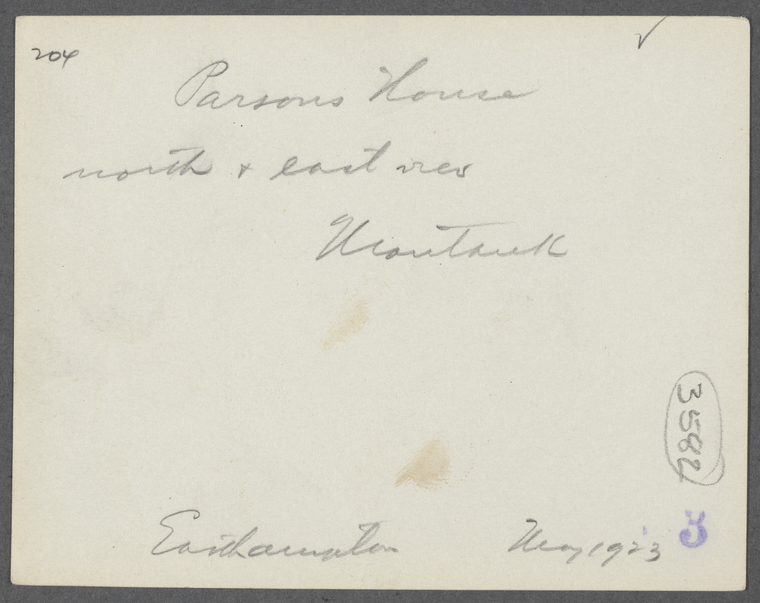 204
Parsons House
north & east view
Montauk
3582
Easthampton May 1923